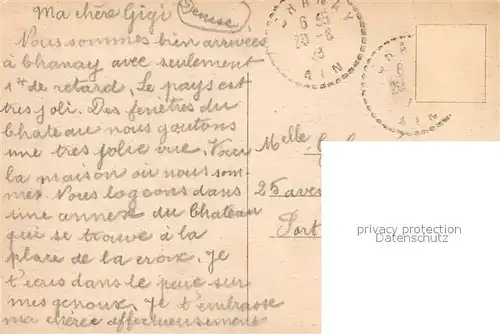 Ma chère Gigi (Denise)
Nous sommes bien arrivées
à Chanay avec seulement
1h de retard. Le pays est
tres joli. Des fenêtres du
Chateau nous goutons
une tres jolie vue. Voici
la maison ou nous som-
mes. Nous logeons dans
une annexe du Chateau
qui se trouve à la
place de la croix. Je
t'ecris dans le parc sur
mes genoux. Je t'embrasse
ma chérie affectueusement
CHANAY
6 45
20-8
AIN
AIN
Melle
25 aves
Port
privacy protection
Datenschutz